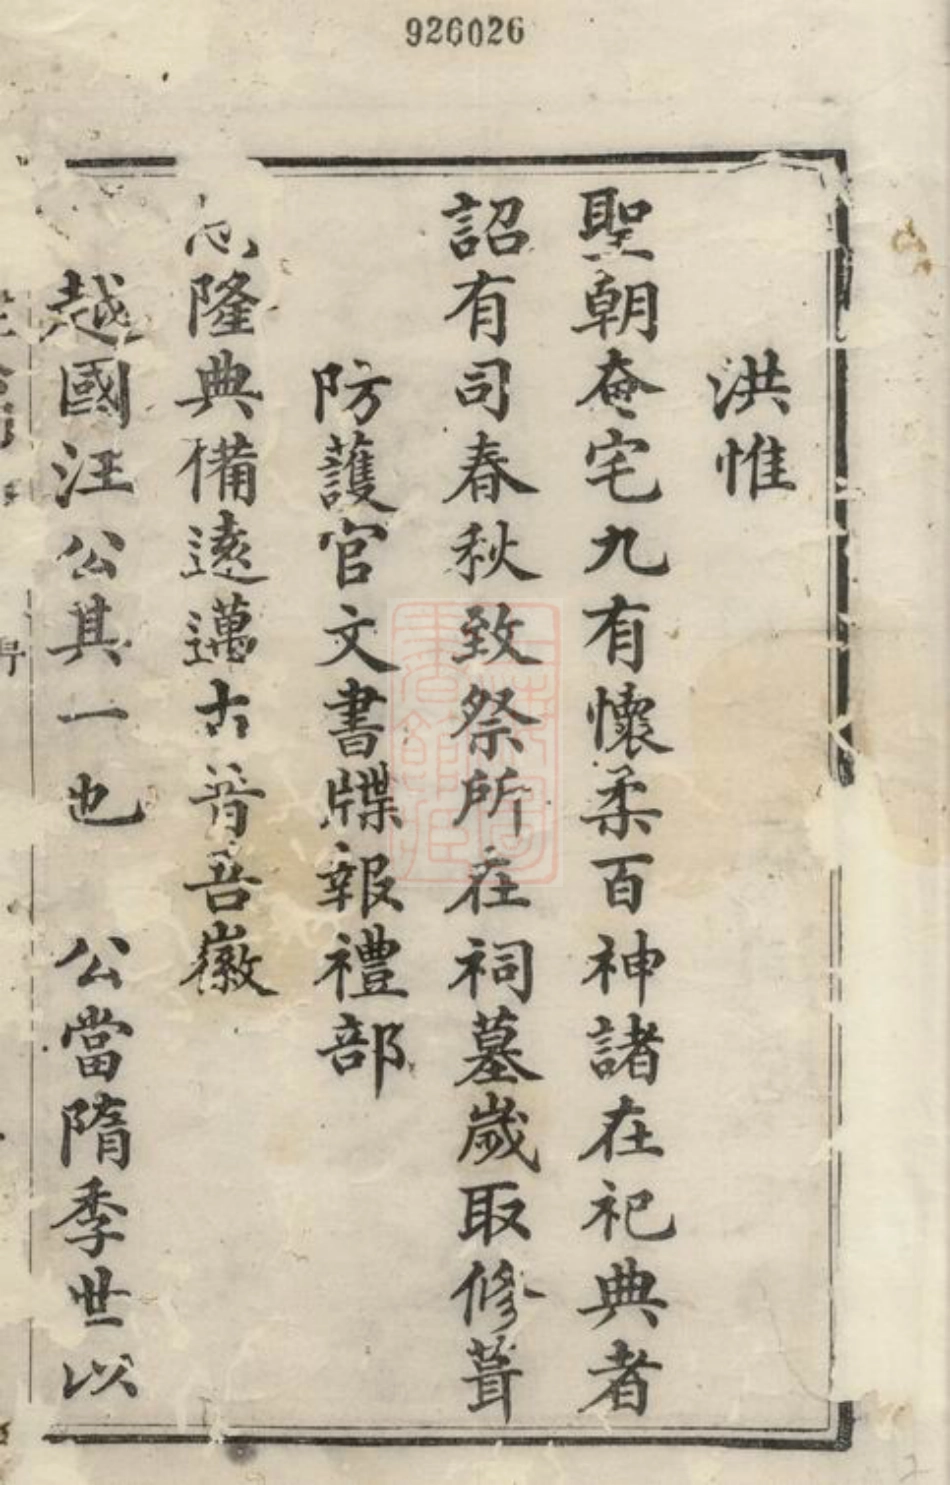 926026
洪惟
聖朝奄宅九有懷柔百神諸在祀典者
詔有司春秋致祭所在祠墓歲取修葺
防護官文書牒報禮部
隆典備遠邁古昔吾徽
越國汪公其一也 公當隋季世以